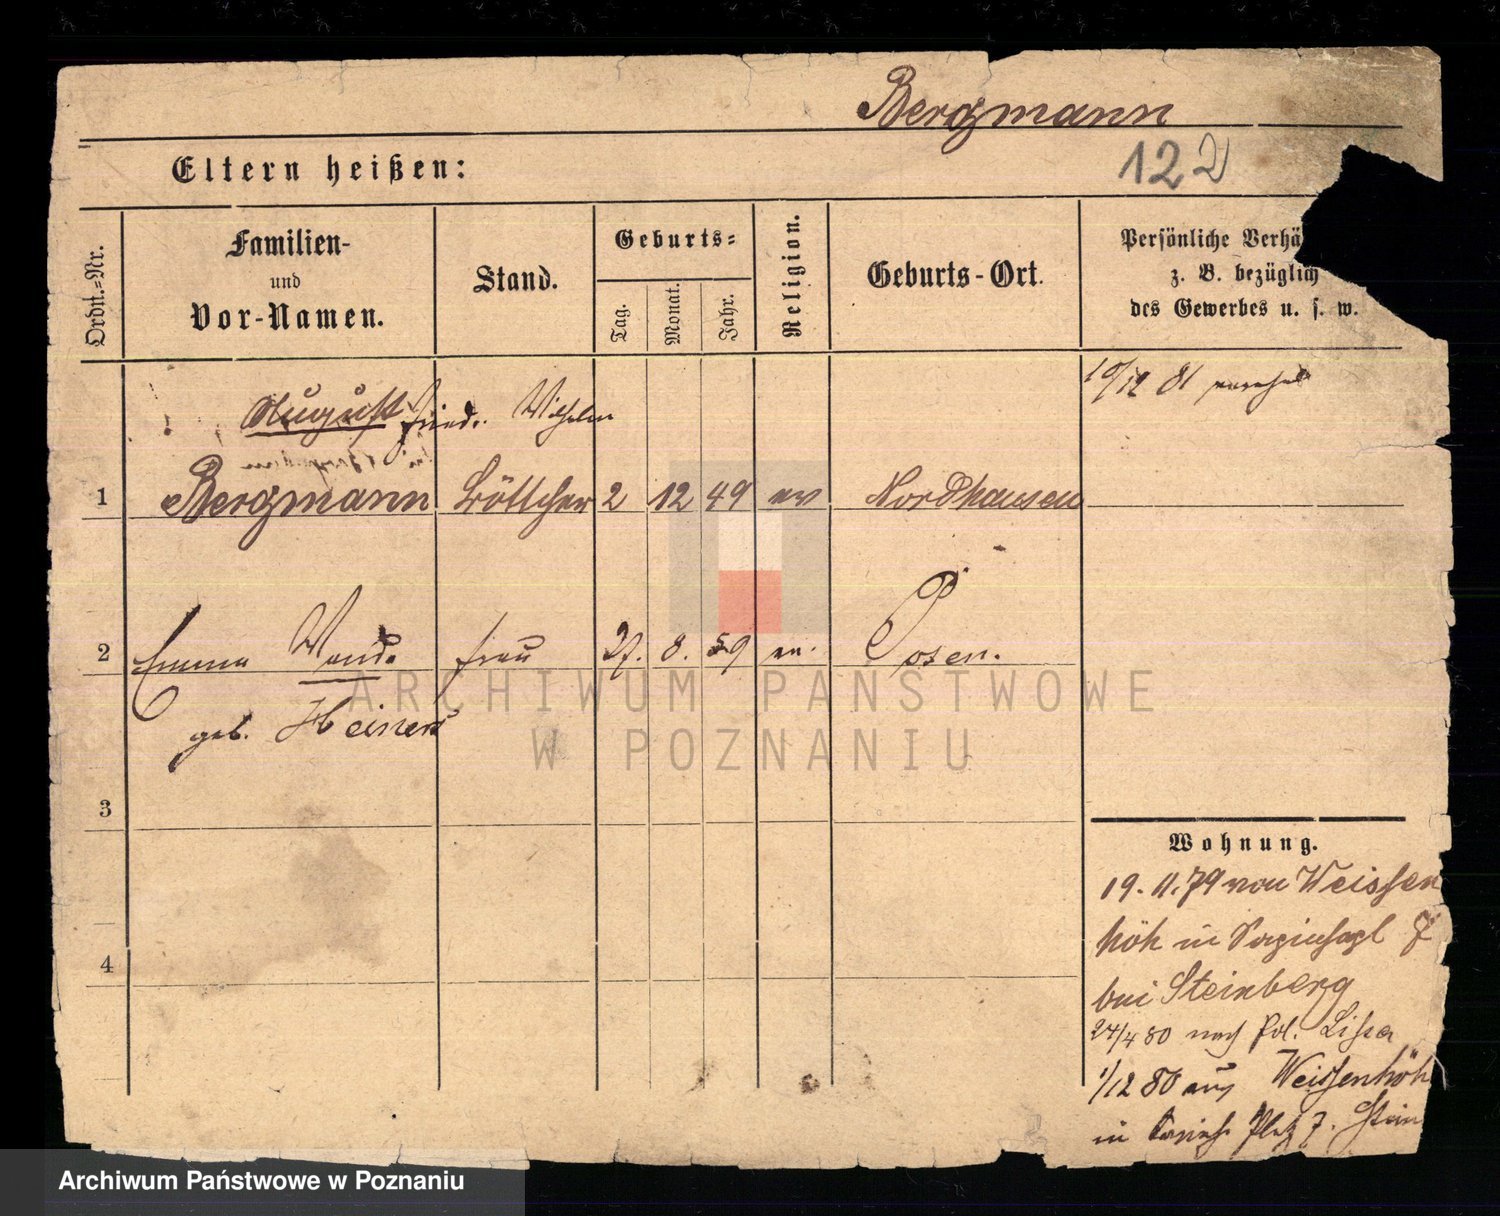 Bergmann
122
Eltern heißen:
Ordn.-Nr.
Familien-
und
Vor-Namen.
Stand.
Geburts-
Tag.
Monat.
Jahr.
Religion.
Geburts-Ort.
Persönliche Verhä
z. B. bezüglich
des Gewerbes u. s. w.
19/12 81
August Fried. Wilhelm
1 Bergmann Böttcher 2 12 49 ev Nordhausen
2 Emma Wand. Frau 27. 8. 59 ev. Posen.
geb. Heinert
3
4
Wohnung.
19. 11. 79 von Weissen
höh in 7
bei Steinberg
24/4 80 nach Pol. Lissa
1/12 80 aus Weissenhöh
in 7. Stein
ARCHIWUM PAŃSTWOWE
W POZNANIU
Archiwum Państwowe w Poznaniu